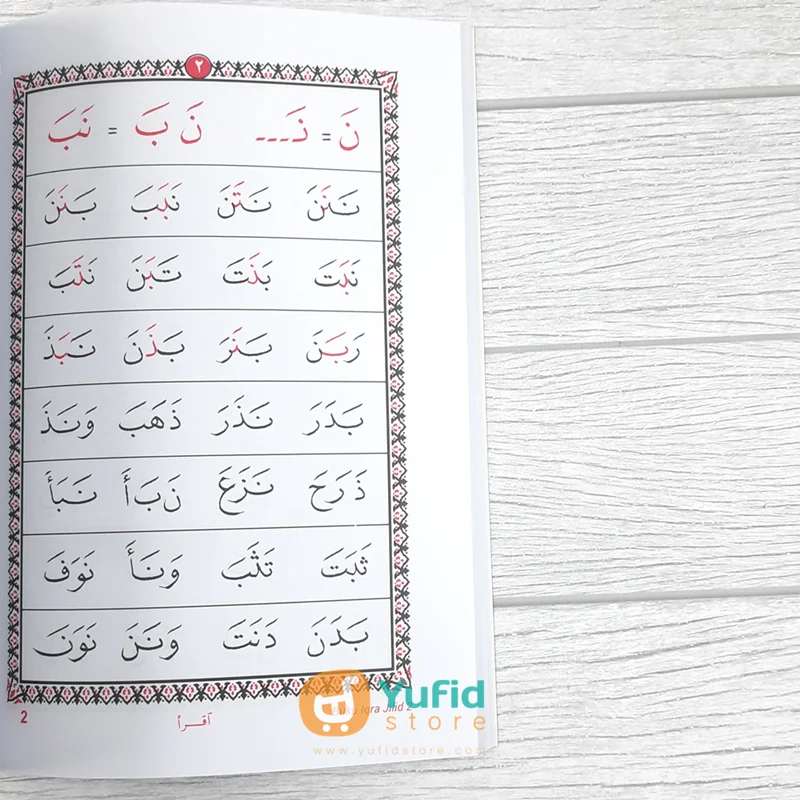 ٢
نَ = نَـ ـ ـ ـ نَ بَ = نَبَ
نَنَنَ نَتَنَ نَبَبَ بَنَنَ
نَبَتَ بَنَتَ تَبَنَ نَتَبَ
رَبَنَ بَنَرَ بَذَنَ نَبَذَ
بَدَرَ نَذَرَ ذَهَبَ وَنَذَ
ذَرَحَ نَزَعَ نَ بَ أَ نَبَأَ
ثَبَتَ تَثَبَ وَنَأَ نَوَفَ
بَدَنَ دَنَتَ وَنَنَ نَوَنَ
2 اقرأ Buku Iqra Jilid 2
Yufid
store
www.yufidstore.com